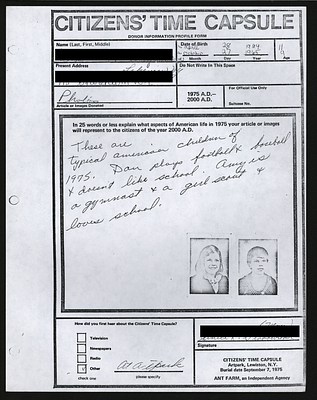 CITIZENS' TIME CAPSULE
DONOR INFORMATION PROFILE FORM
Name (Last, First, Middle)
Date of Birth
Month Day Year
Present Address
Do Not Write In This Space
Photos
Article or Images Donated
1975 A.D.—
2000 A.D.
For Official Use Only
Suitcase No.
In 25 words or less explain what aspects of American life in 1975 your article or images
will represent to the citizens of the year 2000 A.D.
These are
typical american children of
1975. Dan plays football & baseball
& doesn't like school. Amy is
a gymnast & a girl scout &
loves school.
How did you first hear about the Citizens' Time Capsule?
Television
Newspapers
Radio
Other
At Artpark
check one
please specify
Signature
CITIZENS' TIME CAPSULE
Artpark, Lewiston, N.Y.
Burial date September 7, 1975
ANT FARM, an Independent Agency